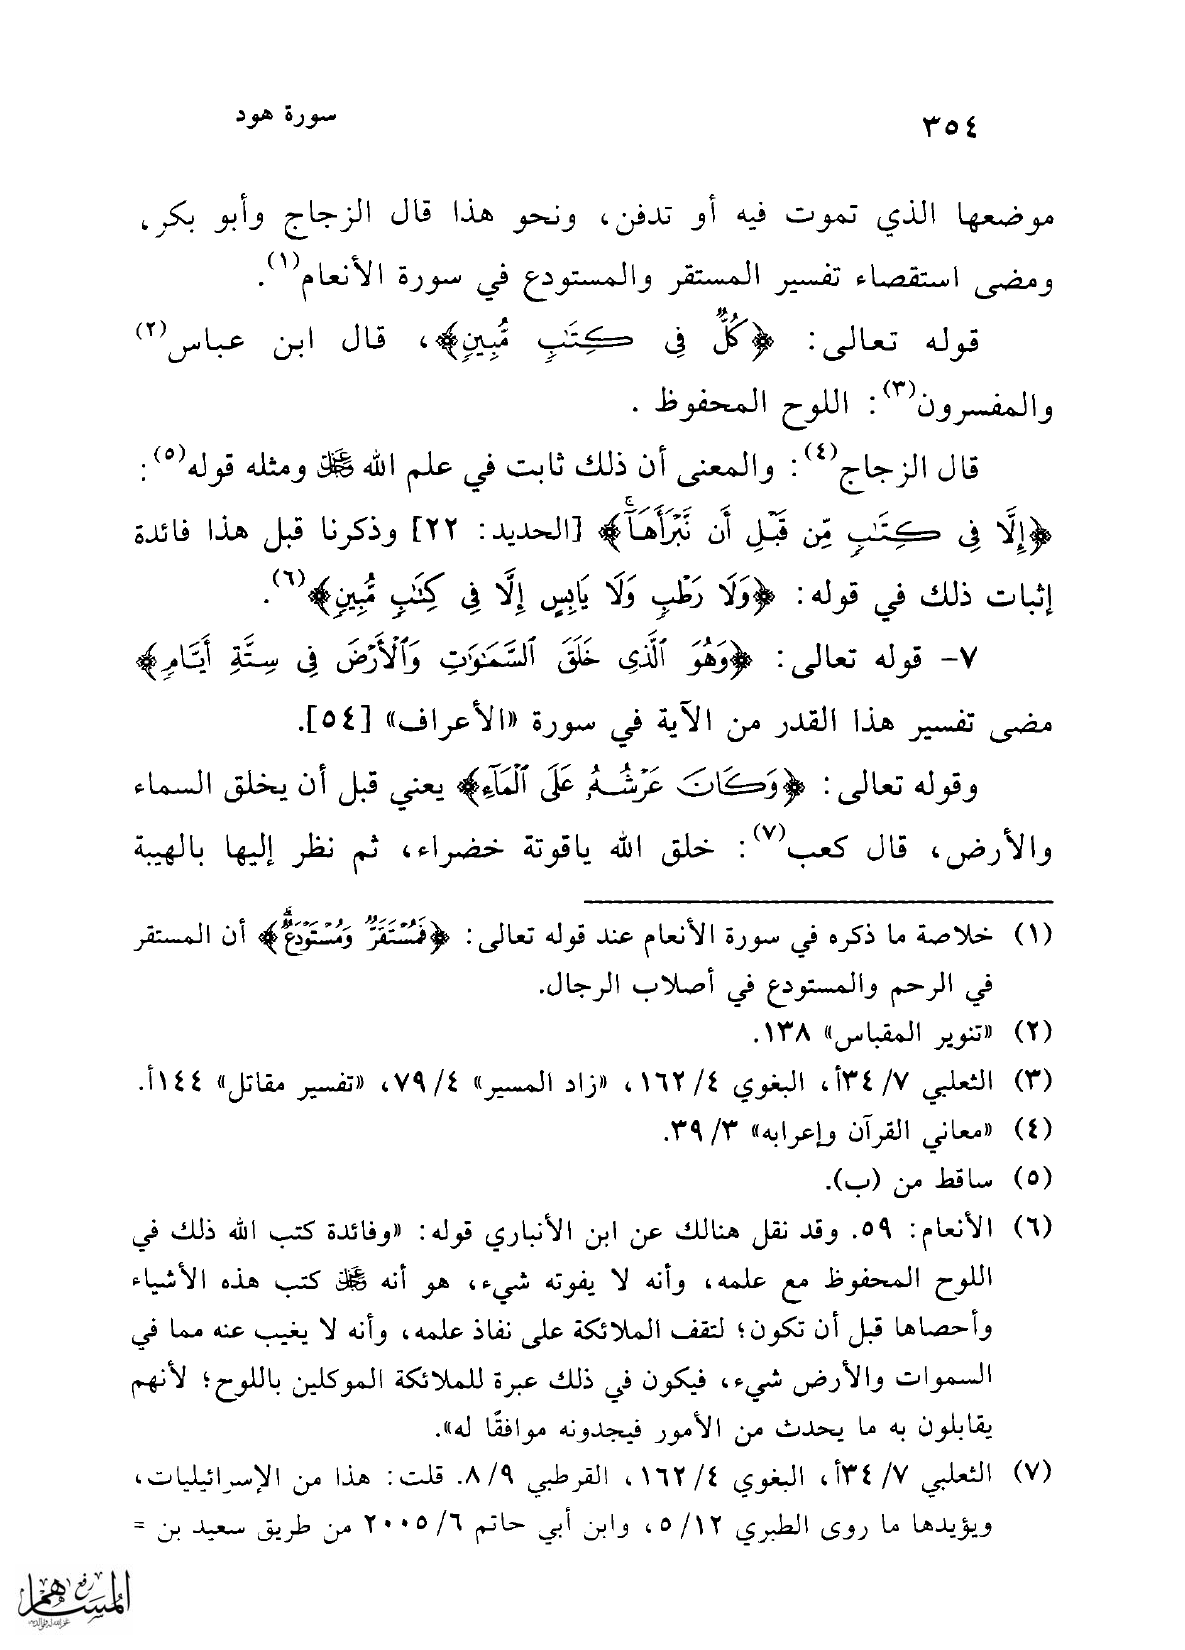 ٣٥٤
سورة هود
موضعها الذي تموت فيه أو تدفن، ونحو هذا قال الزجاج وأبو بكر،
ومضى استقصاء تفسير المستقر والمستودع في سورة الأنعام(١).
قوله تعالى: ﴿كُلٌّ فِي كِتَٰبٍ مُّبِينٍ﴾، قال ابن عباس(٢)
والمفسرون(٣): اللوح المحفوظ .
قال الزجاج(٤): والمعنى أن ذلك ثابت في علم الله عز وجل ومثله قوله(٥):
﴿إِلَّا فِي كِتَٰبٍ مِّن قَبْلِ أَن نَّبْرَأَهَآ﴾ [الحديد: ٢٢] وذكرنا قبل هذا فائدة
إثبات ذلك في قوله: ﴿وَلَا رَطْبٍ وَلَا يَابِسٍ إِلَّا فِي كِتَٰبٍ مُّبِينٍ﴾(٦).
٧- قوله تعالى: ﴿وَهُوَ ٱلَّذِى خَلَقَ ٱلسَّمَٰوَٰتِ وَٱلْأَرْضَ فِى سِتَّةِ أَيَّامٍ﴾
مضى تفسير هذا القدر من الآية في سورة «الأعراف» [٥٤].
وقوله تعالى: ﴿وَكَانَ عَرْشُهُۥ عَلَى ٱلْمَآءِ﴾ يعني قبل أن يخلق السماء
والأرض، قال كعب(٧): خلق الله ياقوتة خضراء، ثم نظر إليها بالهيبة
(١) خلاصة ما ذكره في سورة الأنعام عند قوله تعالى: ﴿فَمُسْتَقَرٌّ وَمُسْتَوْدَعٌ﴾ أن المستقر
في الرحم والمستودع في أصلاب الرجال.
(٢) «تنوير المقباس» ١٣٨.
(٣) الثعلبي ٧/ ٣٤أ، البغوي ٤/ ١٦٢، «زاد المسير» ٤/ ٧٩، «تفسير مقاتل» ١٤٤أ.
(٤) «معاني القرآن وإعرابه» ٣/ ٣٩.
(٥) ساقط من (ب).
(٦) الأنعام: ٥٩. وقد نقل هنالك عن ابن الأنباري قوله: «وفائدة كتب الله ذلك في
اللوح المحفوظ مع علمه، وأنه لا يفوته شيء، هو أنه عز وجل كتب هذه الأشياء
وأحصاها قبل أن تكون؛ لتقف الملائكة على نفاذ علمه، وأنه لا يغيب عنه مما في
السموات والأرض شيء، فيكون في ذلك عبرة للملائكة الموكلين باللوح؛ لأنهم
يقابلون به ما يحدث من الأمور فيجدونه موافقًا له».
(٧) الثعلبي ٧/ ٣٤أ، البغوي ٤/ ١٦٢، القرطبي ٩/ ٨. قلت: هذا من الإسرائيليات،
ويؤيدها ما روى الطبري ١٢/ ٥، وابن أبي حاتم ٦/ ٢٠٠٥ من طريق سعيد بن =